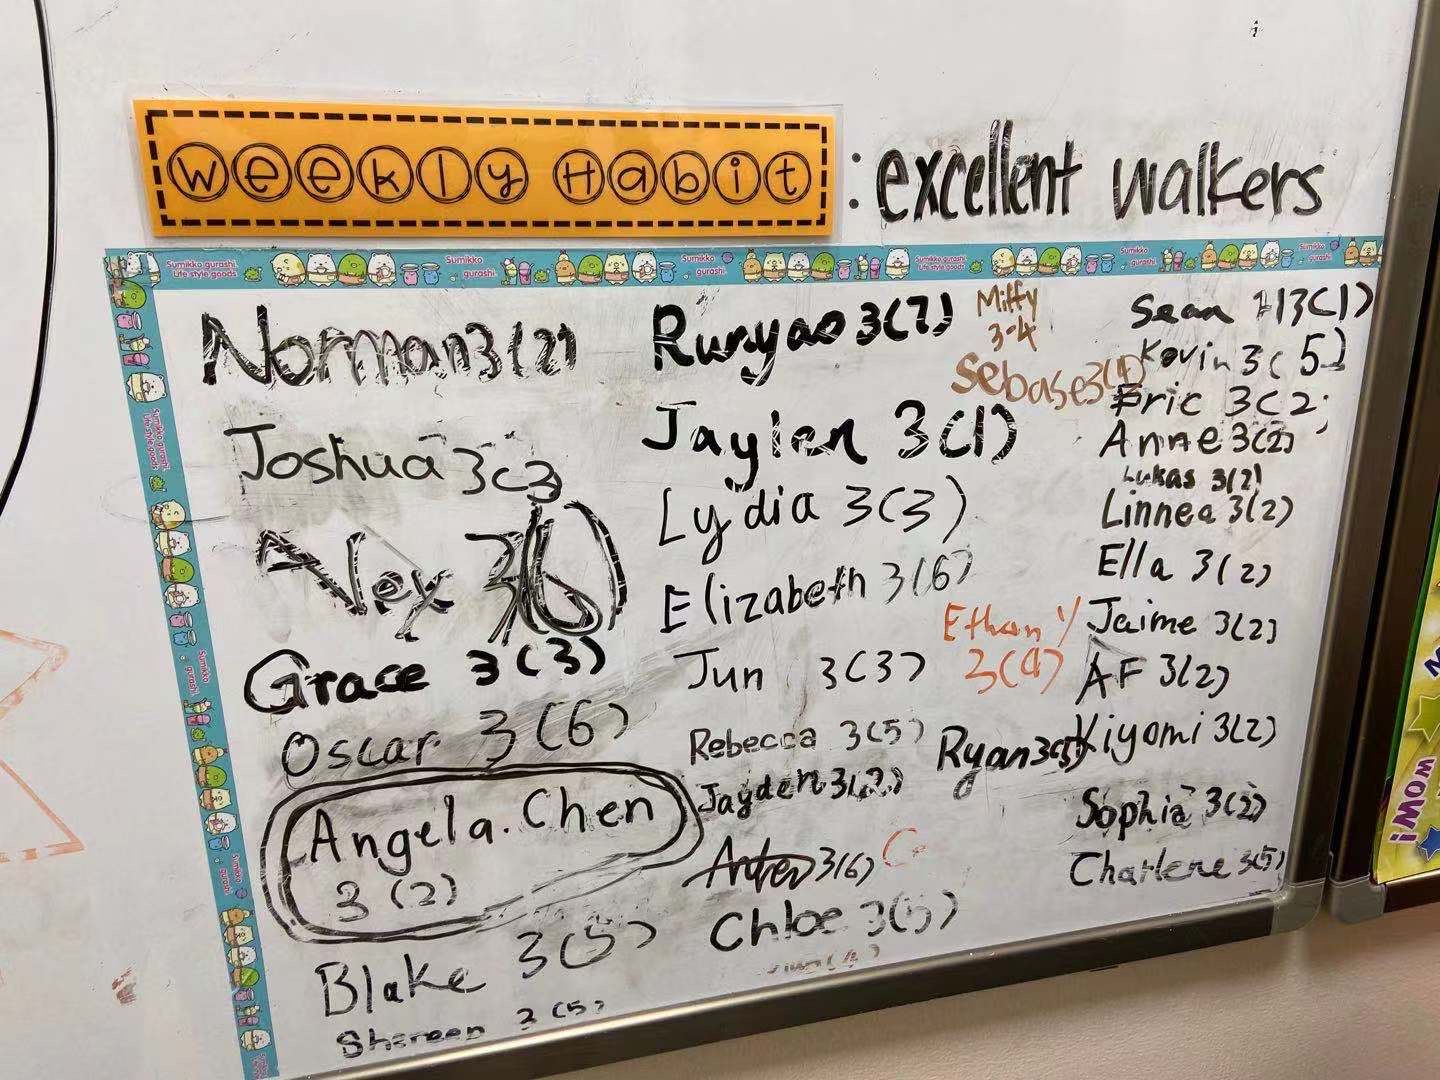 Weekly Habit : excellent walkers
Sumikko gurashi Life style goods
Sumikko gurashi
Sumikko gurashi
Sumikko gurashi Life style goods
Sumikko gurashi
Norman 3(2)
Joshua 3(3)
Alex 3(6)
Grace 3(3)
Oscar 3(6)
Angela. Chen
3(2)
Blake 3(5)
Shareen 3(5)
Runyao 3(7)
Jaylen 3(1)
Lydia 3(3)
Elizabeth 3(6)
Jun 3(3)
Rebecca 3(5)
Jayden 3(2)
3(6)
Chloe 3(5)
Miffy
3-4
Sebase 3(4)
Ethan Y
3(4)
Ryan 3(5)
Sean 3(1)
Kovin 3(5)
Eric 3(2;
Anne 3(2)
Lukas 3(2)
Linnea 3(2)
Ella 3(2)
Jaime 3(2)
AF 3(2)
Kiyomi 3(2)
Sophia 3(2)
Charlene 3(5)
WOW!